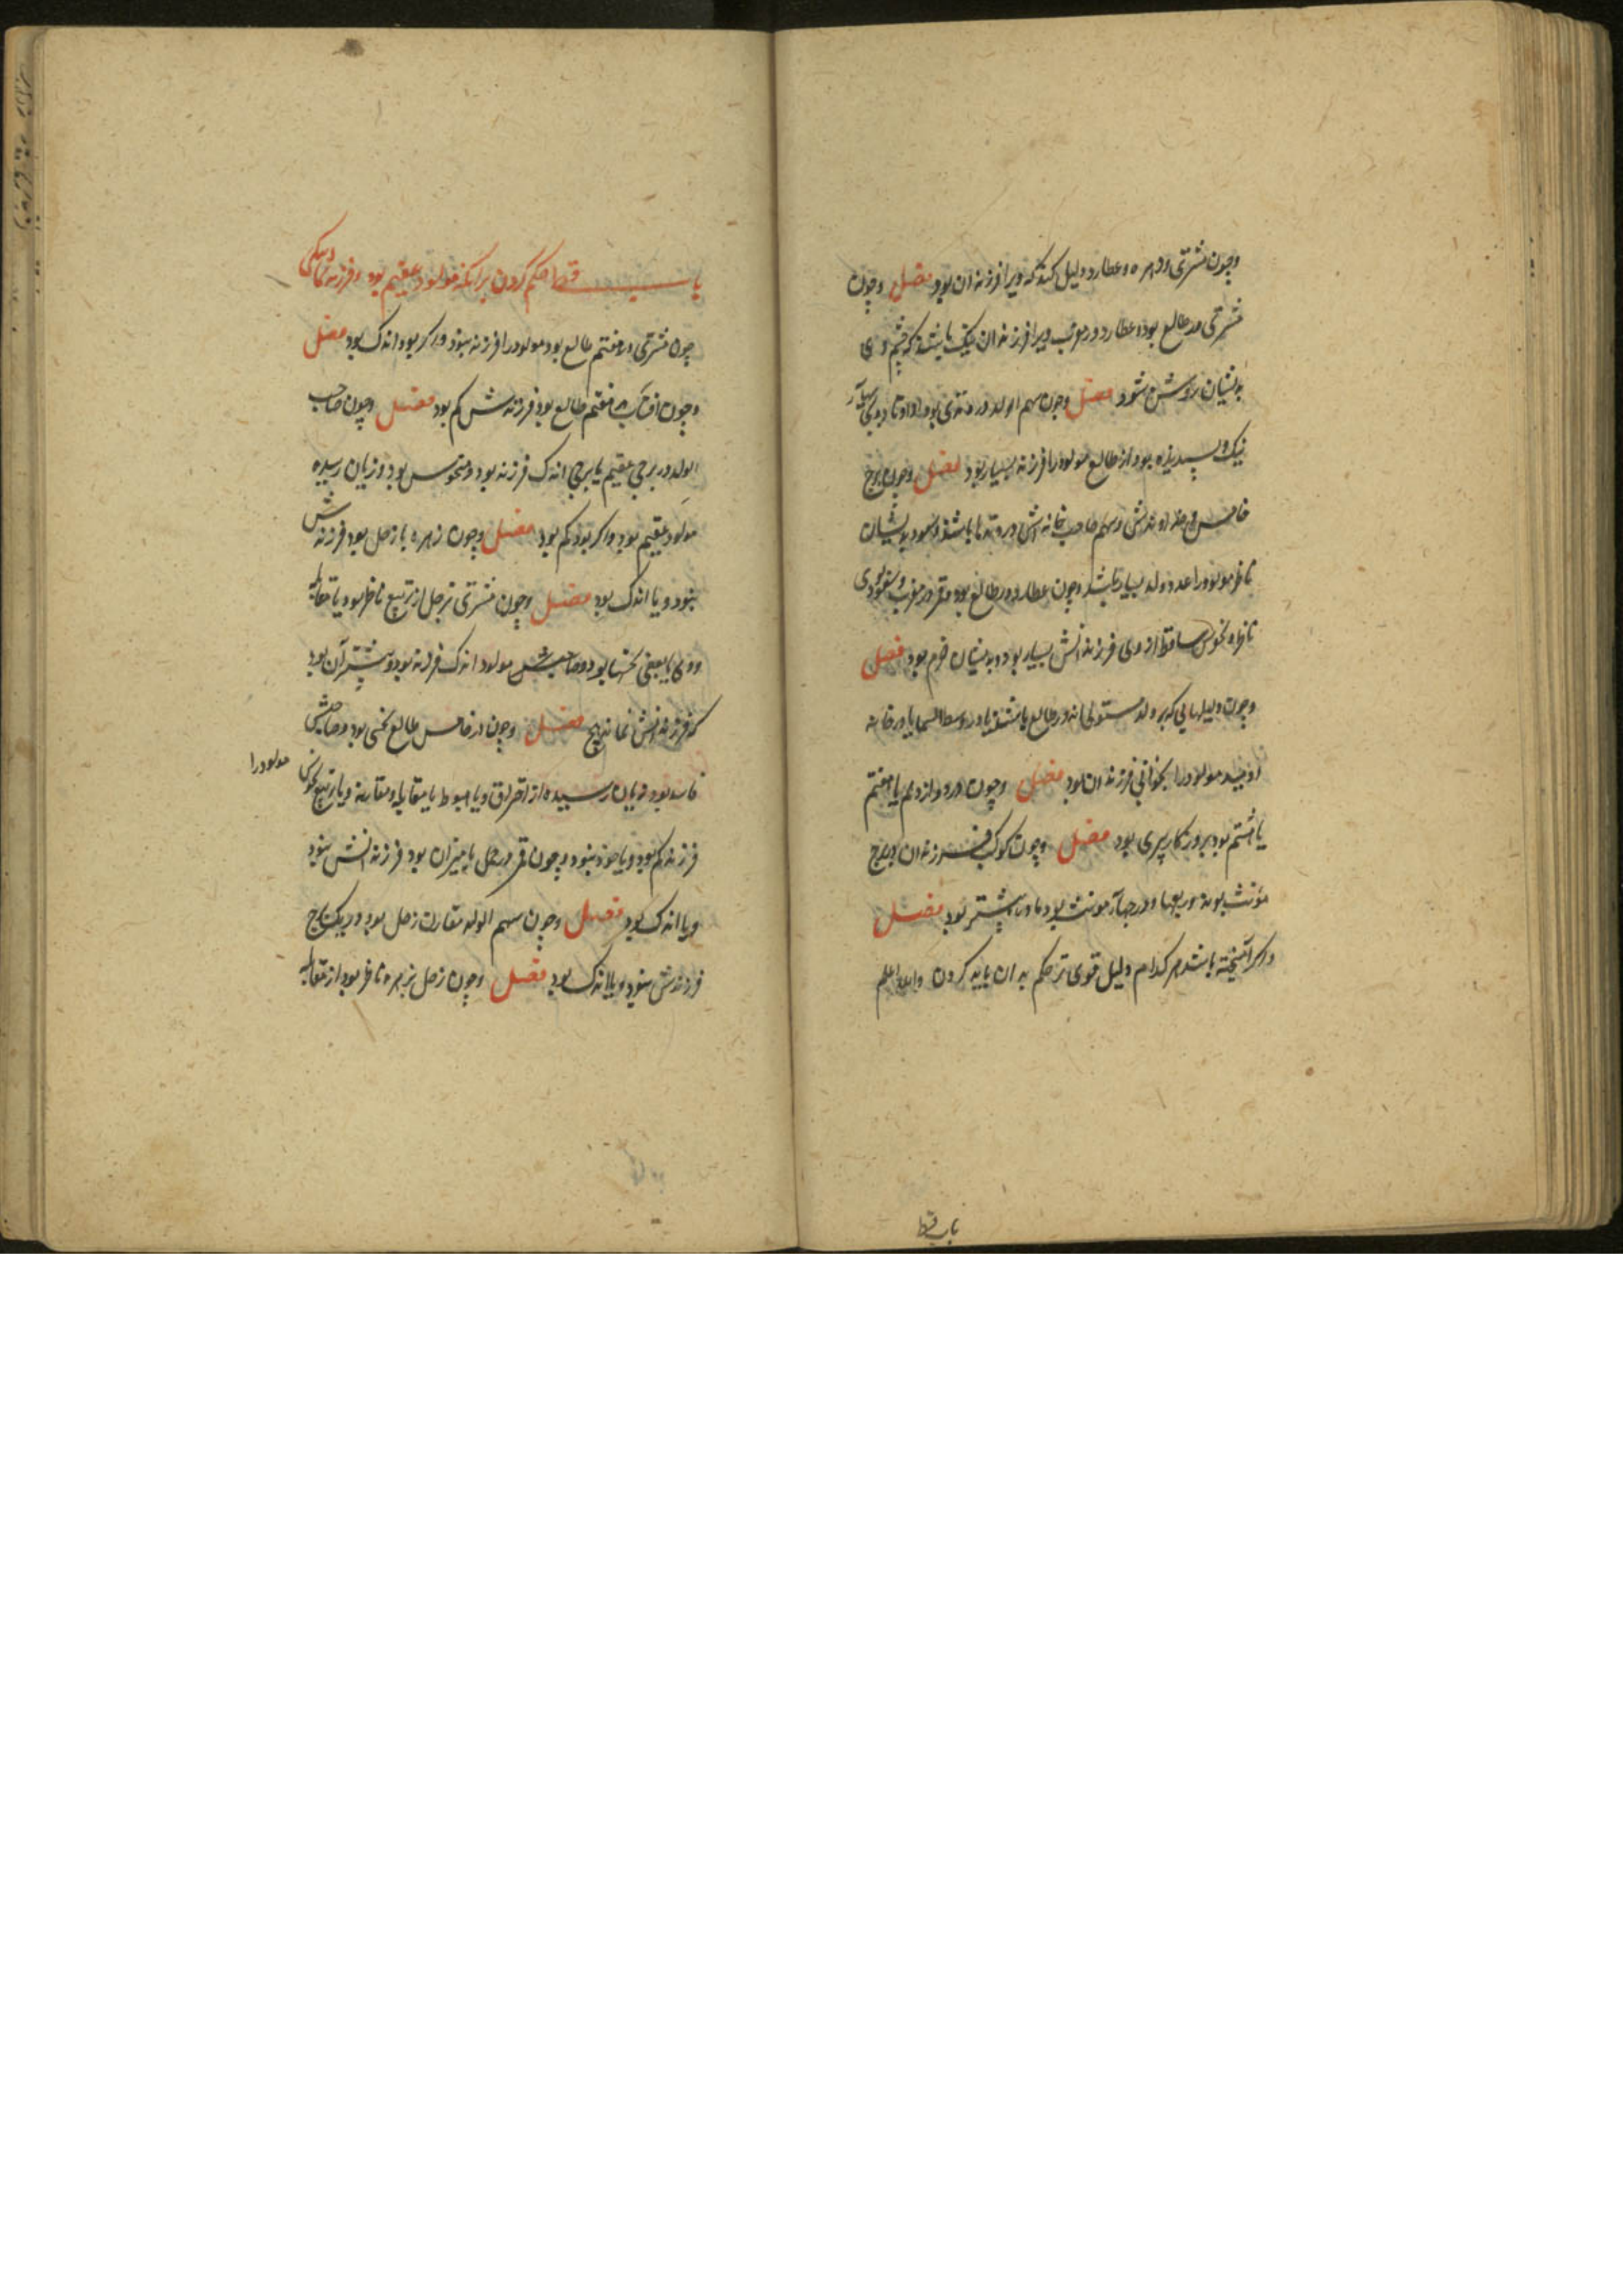 وچون مشتری وزهره وعطارد دلیل کند که ویرا فرزندان بود فصل وچون
مشتری در طالع بود وعطارد در مغرب ویرا فرزندان نیک باشند که چشم وی
بدیشان روشن شود فصل وچون سهم الولد در وتدی بود از اوتاد
نیک وپسندیده بود از طالع مولود را فرزند بسیار بود فصل وچون برج
خامس وخداوندش وسهم صاحب خانه اش در وتدها باشند وسعود بدیشان
ناظر مولود را عدد ولد بسیار باشد وچون عطارد در طالع بود وقمر در مغرب
ناظر ونحوس ساقط از وی فرزندانش بسیار بود وبدیشان خرم بود فصل
وچون دلیلهایی که بر ولد مستولی اند در طالع باشند یا در وسط السما یا در خانه
امید مولود را بجوانی فرزندان بود فصل وچون در دوازدهم یا هفتم
یا هشتم بود بروزکار پیری بود فصل وچون کوکب فرزندان در برج
مؤنث بود ودر ربعها ودر جهاء مونث بود ماده بیشتر بود فصل
واکر آمیخته باشد هر کدام دلیل قوی تر حکم بدان باید کردن والله اعلم
باب قط
باب قط حکم کردن برانکه مولود عقیم بود وفرزند
چون مشتری در هفتم طالع بود مولود را فرزند نبود واکر بود اندک بود فصل
وچون آفتاب در هفتم طالع بود فرزندش کم بود فصل وچون صاحب
الولد در برجی عقیم یا برجی اندک فرزند بود ومنحوس بود وزیان رسیده
مولود عقیم بود واکر بود کم بود فصل وچون زهره با زحل بود فرزندش
نبود ویا اندک بود فصل وچون مشتری بزحل از تربیع ناظر بود یا مقابله
ووی با بعضی نحسها بود وصاحبش مولود اندک فرزند بود وبیشتر آن بود
که فرزندانش نماند هیچ فصل وچون در خامس طالع نحسی بود وصاحبش
فاسد بود وزیان رسیده از احتراق ویا هبوط یا مقابله ومقارنه ویا تربیع نحوس مولود را
فرزند کم بود ویا خود نبود وچون قمر در حمل یا میزان بود فرزندانش نبود
ویا اندک بود فصل وچون سهم الولد مقارن زحل بود در یک برج
فرزندش نبود ویا اندک بود فصل وچون زحل بزهره ناظر بود از مقابله